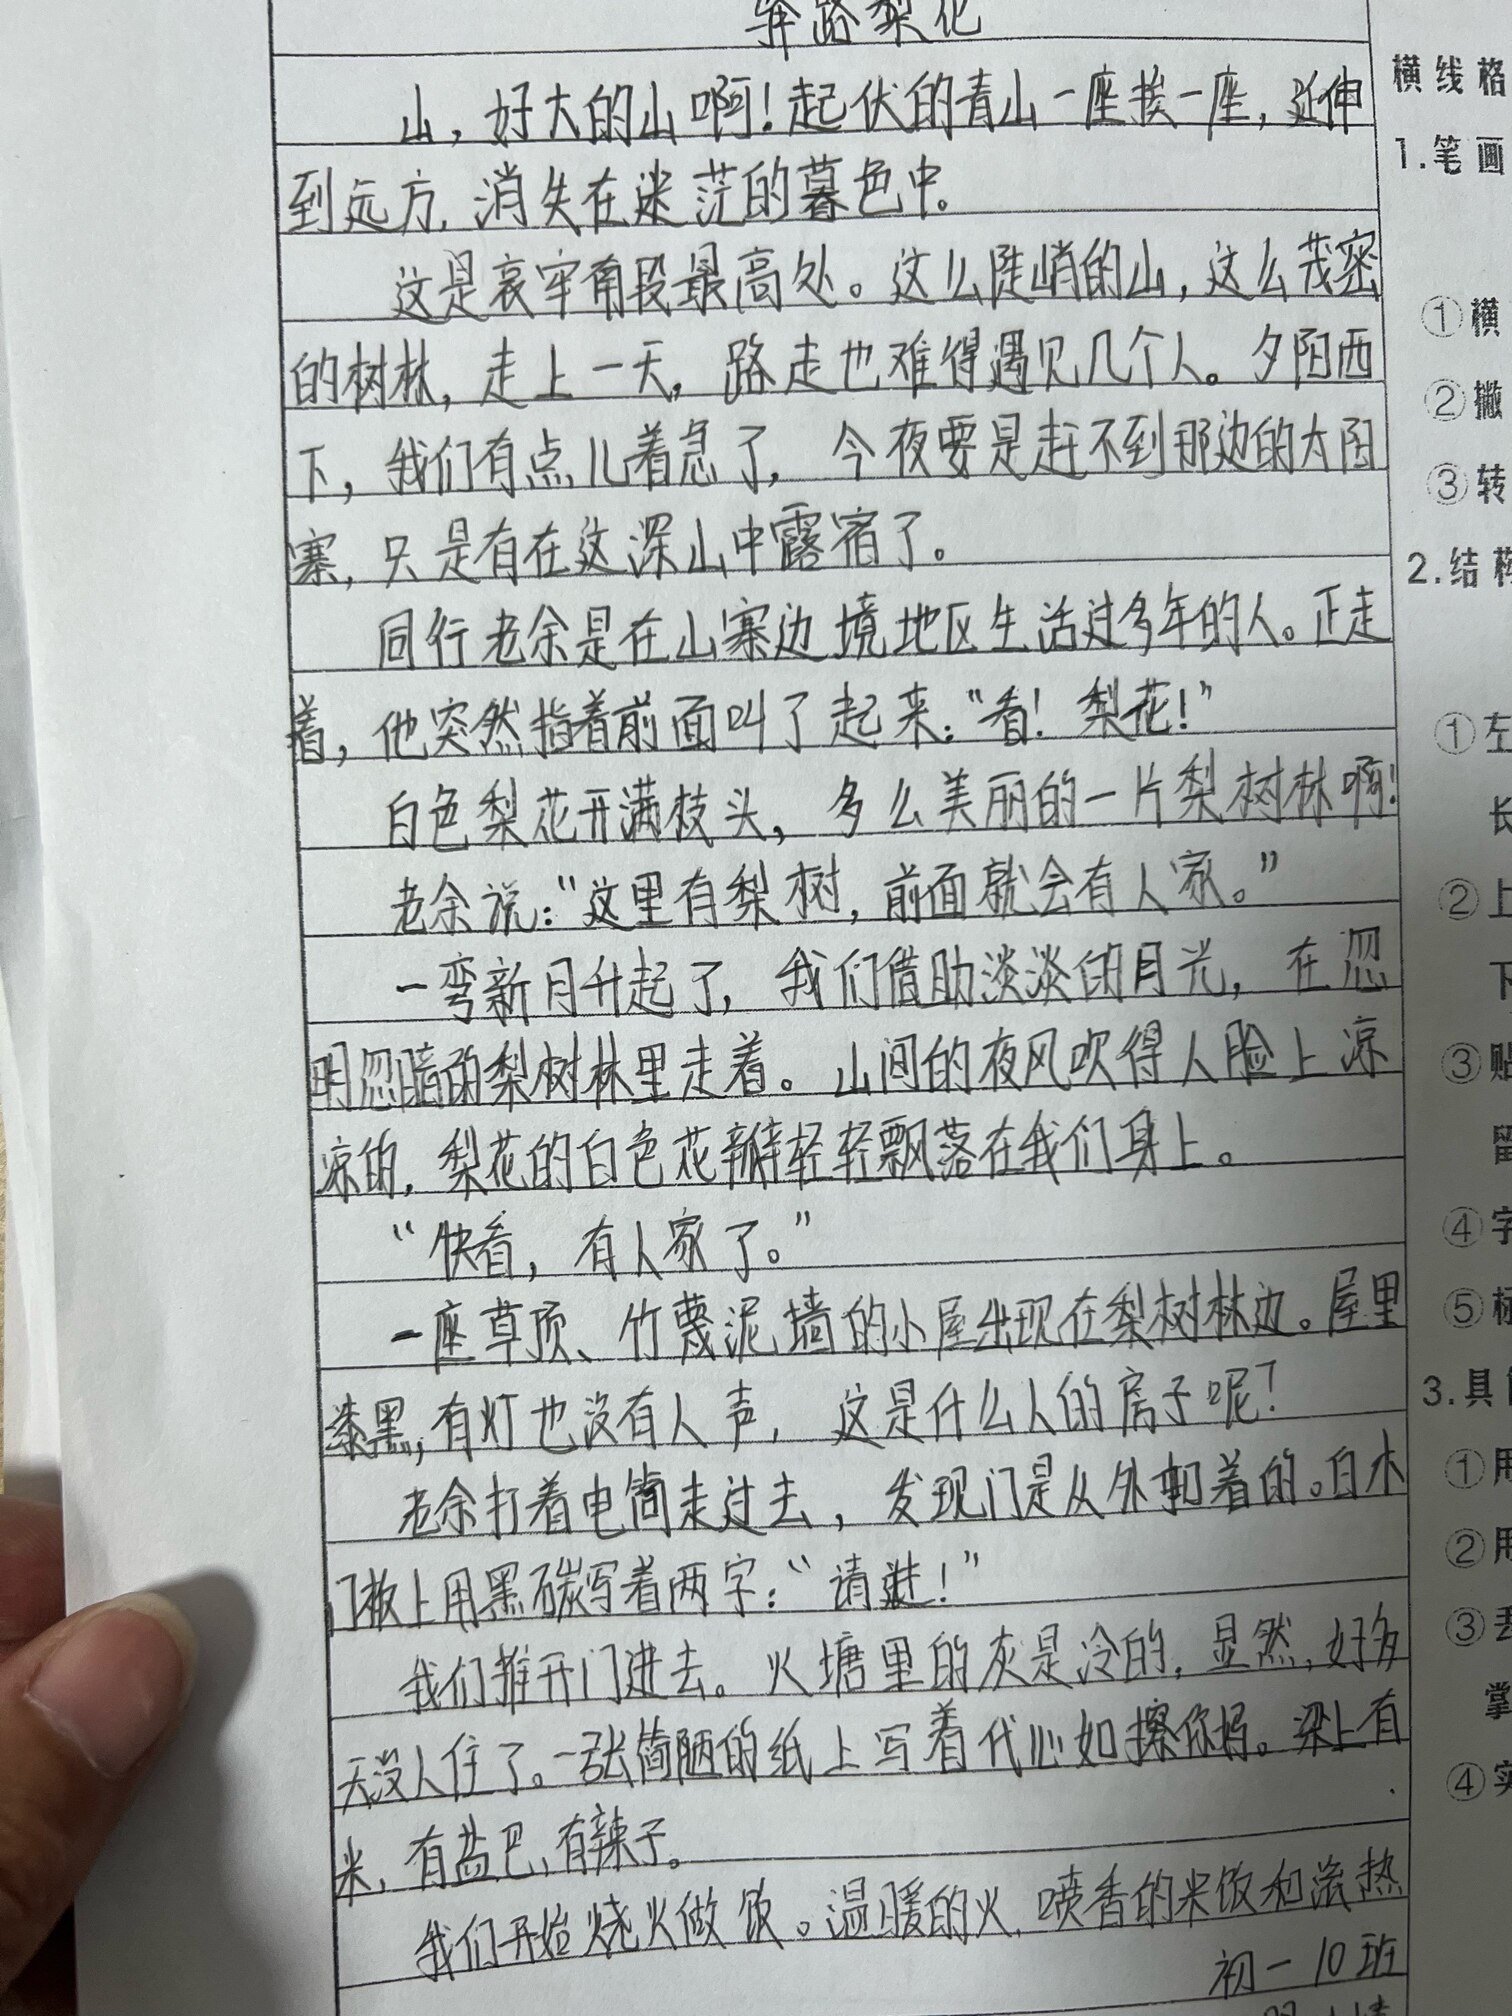 梨花
山，好大的山啊！起伏的青山一座挨一座，延伸
到远方，消失在迷茫的暮色中。
这是哀牢南段最高处。这么陡峭的山，这么茂密
的树林，走上一天，路走也难得遇见几个人。夕阳西
下，我们有点儿着急了，今夜要是赶不到那边的太阳
寨，只是有在这深山中露宿了。
同行老余是在山寨边境地区生活过多年的人。正走
着，他突然指着前面叫了起来：“看！梨花！”
白色梨花开满枝头，多么美丽的一片梨树林啊！
老余说：“这里有梨树，前面就会有人家。”
一弯新月升起了，我们借助淡淡的月光，在忽
明忽暗的梨树林里走着。山间的夜风吹得人脸上凉
凉的，梨花的白色花瓣轻轻飘落在我们身上。
“快看，有人家了。”
一座草顶、竹蔑泥墙的小屋出现在梨树林边。屋里
漆黑，有灯也没有人声，这是什么人的房子呢？
老余打着电筒走过去，发现门是从外扣着的。白木
门板上用黑碳写着两字：“请进！”
我们推开门进去。火塘里的灰是冷的，显然，好多
天没人住了。一张简陋的纸上写着代心如擦你妈。梁上有
米，有盐巴，有辣子。
我们开始烧火做饭。温暖的火，喷香的米饭和滚热
初一10班
横线格
1.笔画
①横
②撇
③转
2.结构
①左
长
②上
下
③贴
留
④字
⑤标
3.具
①用
②用
③丢
掌
④实